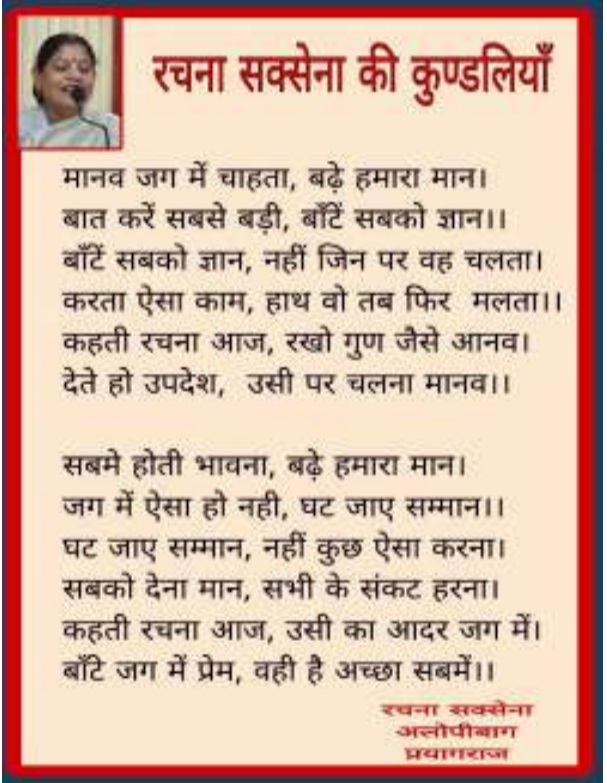 रचना सक्सेना की कुण्डलियाँ
मानव जग में चाहता, बढ़े हमारा मान।
बात करें सबसे बड़ी, बाँटें सबको ज्ञान।।
बाँटें सबको ज्ञान, नहीं जिन पर वह चलता।
करता ऐसा काम, हाथ वो तब फिर मलता।।
कहती रचना आज, रखो गुण जैसे आनव।
देते हो उपदेश, उसी पर चलना मानव।।
सबमे होती भावना, बढ़े हमारा मान।
जग में ऐसा हो नही, घट जाए सम्मान।।
घट जाए सम्मान, नहीं कुछ ऐसा करना।
सबको देना मान, सभी के संकट हरना।
कहती रचना आज, उसी का आदर जग में।
बाँटे जग में प्रेम, वही है अच्छा सबमें।।
रचना सक्सेना
अलोपीबाग
प्रयागराज